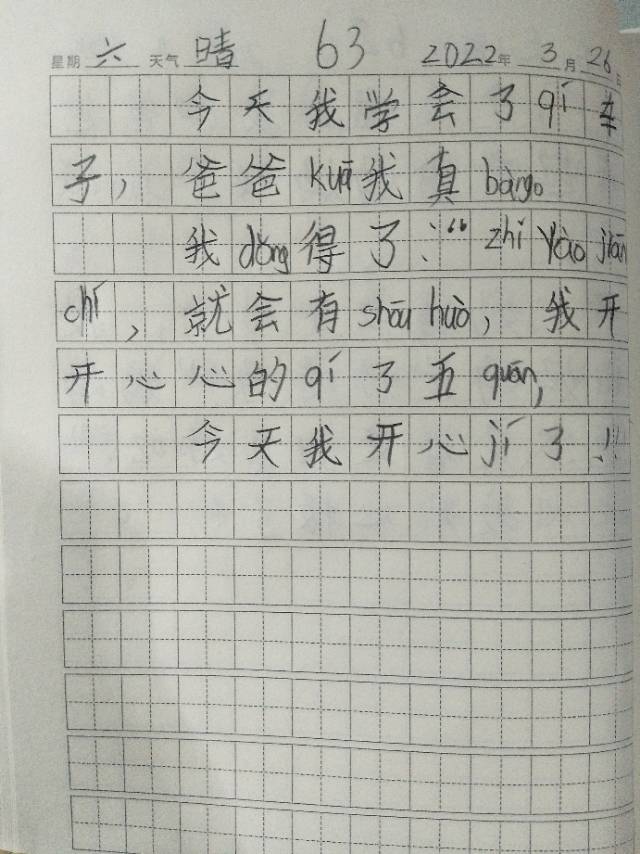 星期 六 天气 晴 63 2022年 3月26日
今天我学会了qí车
子，爸爸kuā我真bàng。
我dǒng得了：“zhǐ yào jiān
chí，就会有shōu huò，我开
开心心的qí了五quān，
今天我开心jí了！！